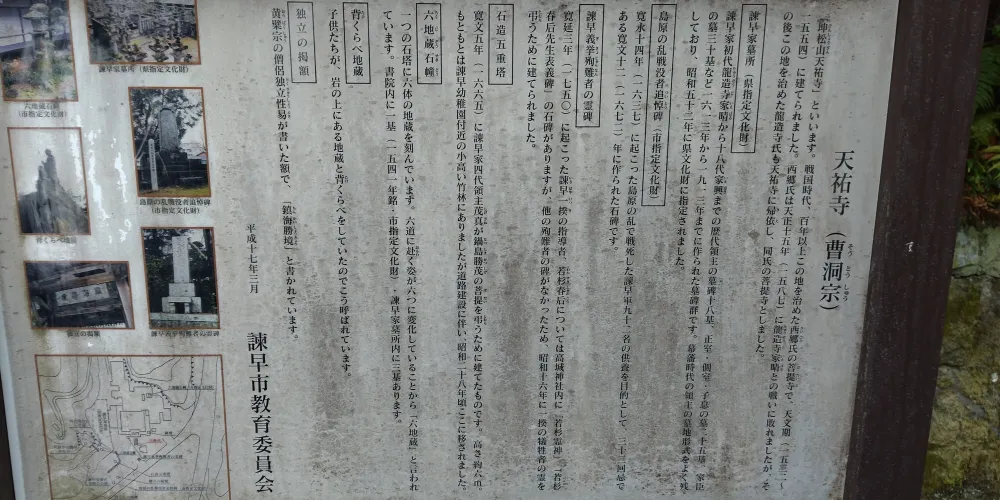 天祐寺（曹洞宗）
そうとうしゅう
「坤松山天祐寺」といいます。戦国時代、百年以上この地を治めた西郷氏の菩提寺で、天文期（一五三二～
一五五四）に建てられました。西郷氏は天正十五年（一五八七）に龍造寺家晴との戦いに敗れましたが、そ
の後この地を治めた龍造寺氏も天祐寺に帰依し、同氏の菩提寺としました。
諫早家墓所（県指定文化財）
諫早家初代龍造寺家晴から十八代家興までの歴代領主の墓碑十八基、正室・側室・子息の墓二十五基、家臣
の墓三十基など一六一三年から一九一三年までに作られた墓碑群です。幕藩時代の領主の墓地形式をよく残
しており、昭和五十三年に県文化財に指定されました。
島原の乱戦没者追悼碑（市指定文化財）
寛永十四年（一六三七）に起こった島原の乱で戦死した諫早軍九十二名の供養を目的として、三十三回忌で
ある寛文十二（一六七二）年に作られた石碑です。
諫早義挙殉難者の霊碑
寛延三年（一七五〇）に起こった諫早一揆の指導者、若杉春后については高城神社内に「若杉霊神」「若杉
春后先生表義碑」の石碑がありますが、他の殉難者の碑がなかったため、昭和十六年に一揆の犠牲者の霊を
弔うために建てられました。
石造五重塔
寛文五年（一六六五）に諫早家四代領主茂真が鍋島勝茂の菩提を弔うために建てたものです。高さ約六m。
もともとは諫早幼稚園付近の小高い竹林にありましたが道路建設に伴い、昭和二十八年頃ここに移されました。
六地蔵石幢
一つの石塔に六体の地蔵を刻んでいます。六道に赴く姿が六つに変化していることから「六地蔵」と言われ
ています。書院内に一基（一五四一年銘、市指定文化財）・諫早家墓所内に三基あります。
背くらべ地蔵
子供たちが、岩の上にある地蔵と背くらべをしていたのでこう呼ばれています。
独立の掲額
黄檗宗の僧侶独立性易が書いた額で、「鎮海勝境」と書かれています。
平成十七年三月
諫早市教育委員会
諫早家墓所（県指定文化財）
六地蔵石幢
（市指定文化財）
島原の乱戦没者追悼碑
（市指定文化財）
背くらべ地蔵
独立の掲額
諫早義挙殉難者の霊碑